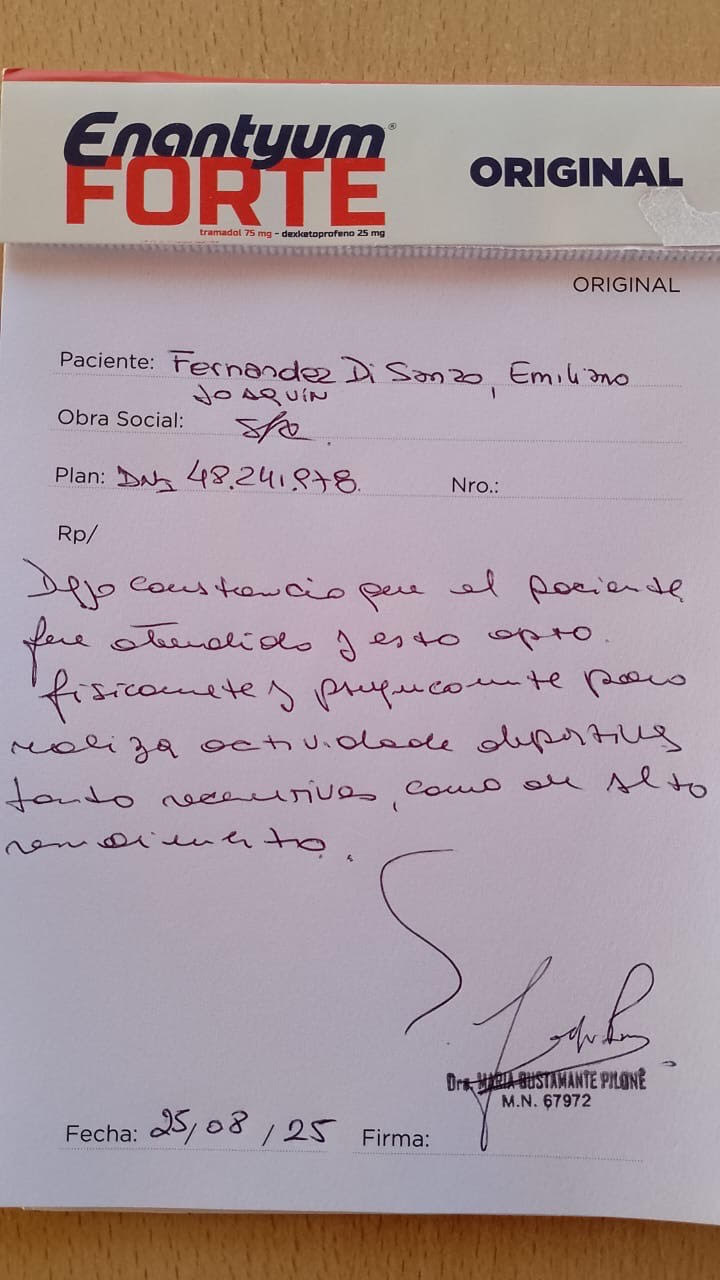 Enantyum®
FORTE
tramadol 75 mg - dexketoprofeno 25 mg
ORIGINAL
ORIGINAL
Paciente: Fernandez Di Sanzo, Emiliano
JOAQUÍN
Obra Social:
Plan: DNI 48.241.978. Nro.:
Rp/
Dejo constancia que el paciente
fue atendido y esta apto
fisicamete y psiquicamente para
realiza actividade deportivas
tanto recreativas, como de alto
rendimiento.
Dra. MARIA BUSTAMANTE PILONE
M.N. 67972
Fecha: 25/08/25 Firma: